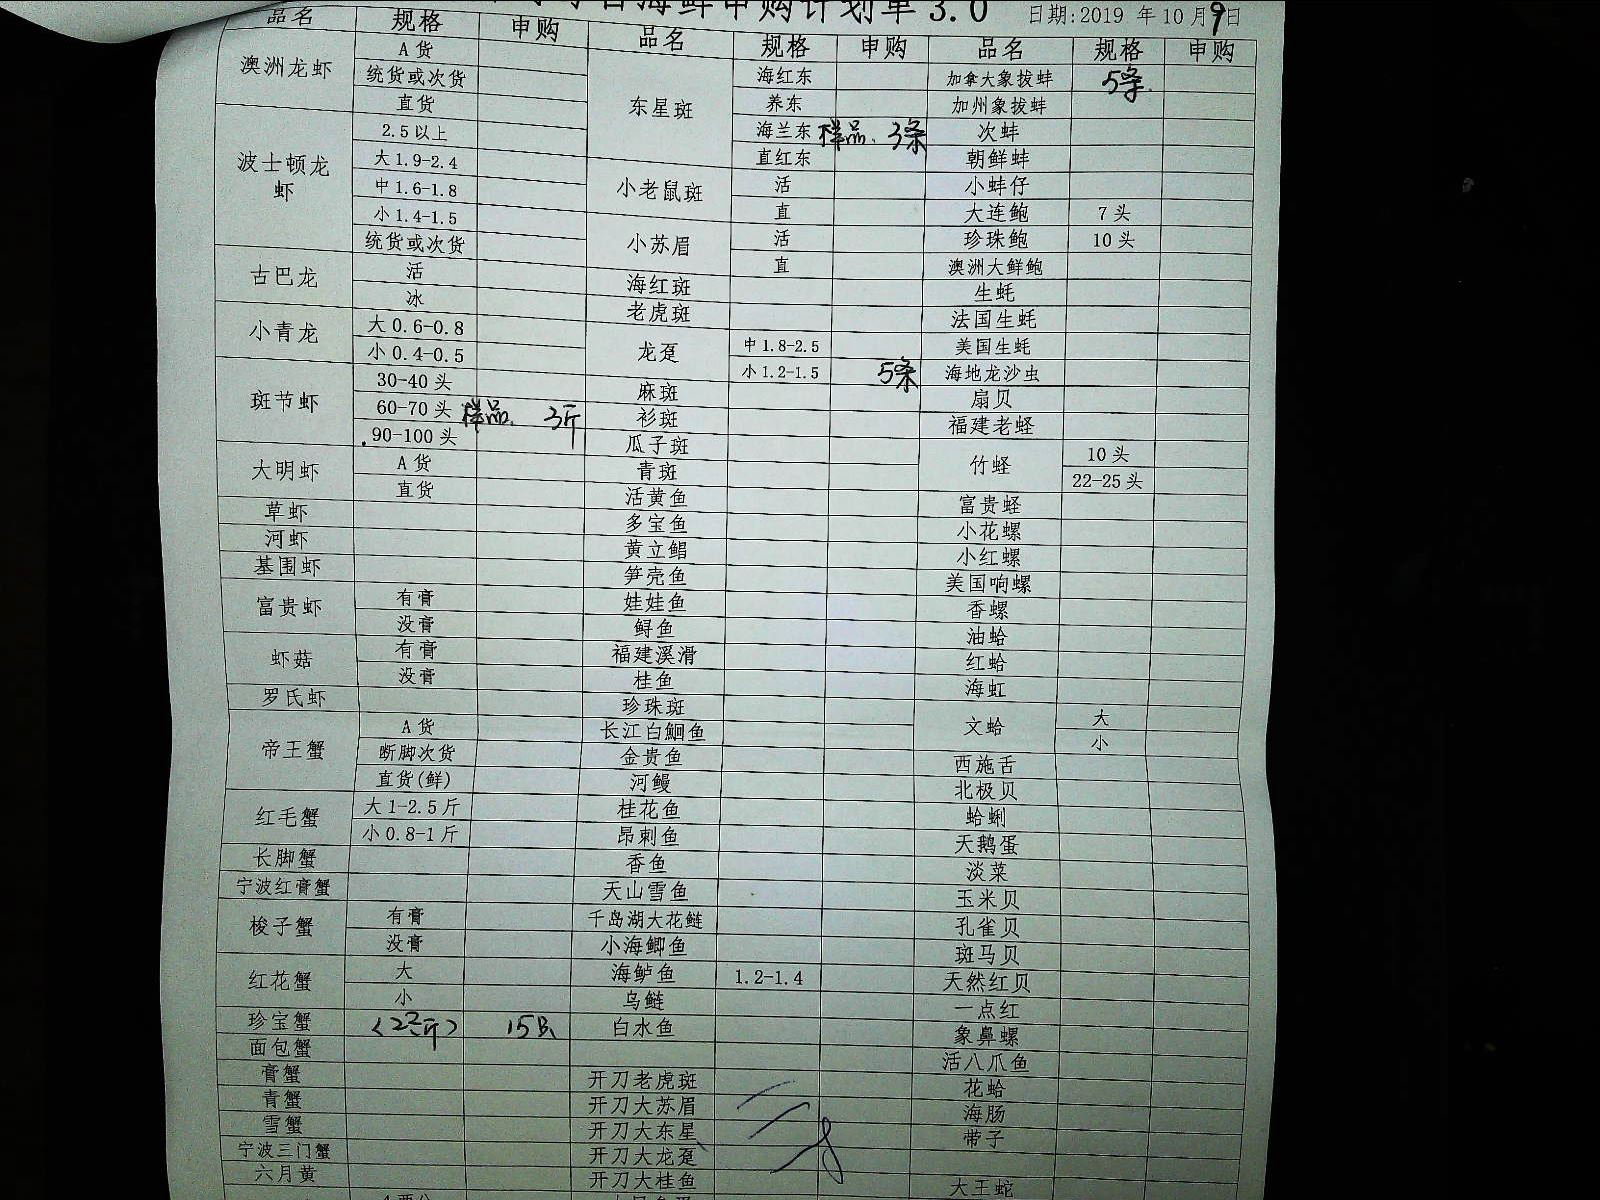 海鲜申购计划单3.0 日期:2019 年10月9日
品名 规格 申购 品名 规格 申购 品名 规格 申购
澳洲龙虾 A货 东星斑 海红东 加拿大象拔蚌 5条
统货或次货 养东 加州象拔蚌
直货 海兰东 样品. 3条 次蚌
波士顿龙虾 2.5以上 直红东 朝鲜蚌
大1.9-2.4 小老鼠斑 活 小蚌仔
中1.6-1.8 直 大连鲍 7头
小1.4-1.5 小苏眉 活 珍珠鲍 10头
统货或次货 直 澳洲大鲜鲍
古巴龙 活 海红斑 生蚝
冰 老虎斑 法国生蚝
小青龙 大0.6-0.8 龙趸 中1.8-2.5 美国生蚝
小0.4-0.5 小1.2-1.5 5条 海地龙沙虫
斑节虾 30-40头 麻斑 扇贝
60-70头 样品. 3斤 衫斑 福建老蛏
90-100头 瓜子斑 竹蛏 10头
大明虾 A货 青斑 22-25头
直货 活黄鱼 富贵蛏
草虾 多宝鱼 小花螺
河虾 黄立鲳 小红螺
基围虾 笋壳鱼 美国响螺
富贵虾 有膏 娃娃鱼 香螺
没膏 鲟鱼 油蛤
虾菇 有膏 福建溪滑 红蛤
没膏 桂鱼 海虹
罗氏虾 珍珠斑 文蛤 大
帝王蟹 A货 长江白鮰鱼 小
断脚次货 金贵鱼 西施舌
直货(鲜) 河鳗 北极贝
红毛蟹 大1-2.5斤 桂花鱼 蛤蜊
小0.8-1斤 昂刺鱼 天鹅蛋
长脚蟹 香鱼 淡菜
宁波红膏蟹 天山雪鱼 玉米贝
梭子蟹 有膏 千岛湖大花鲢 孔雀贝
没膏 小海鲫鱼 斑马贝
红花蟹 大 海鲈鱼 1.2-1.4 天然红贝
小 乌鲢 一点红
珍宝蟹 15只 白水鱼 象鼻螺
面包蟹 活八爪鱼
膏蟹 开刀老虎斑 花蛤
青蟹 开刀大苏眉 海肠
雪蟹 开刀大东星 带子
宁波三门蟹 开刀大龙趸
六月黄 开刀大桂鱼 大王蛇